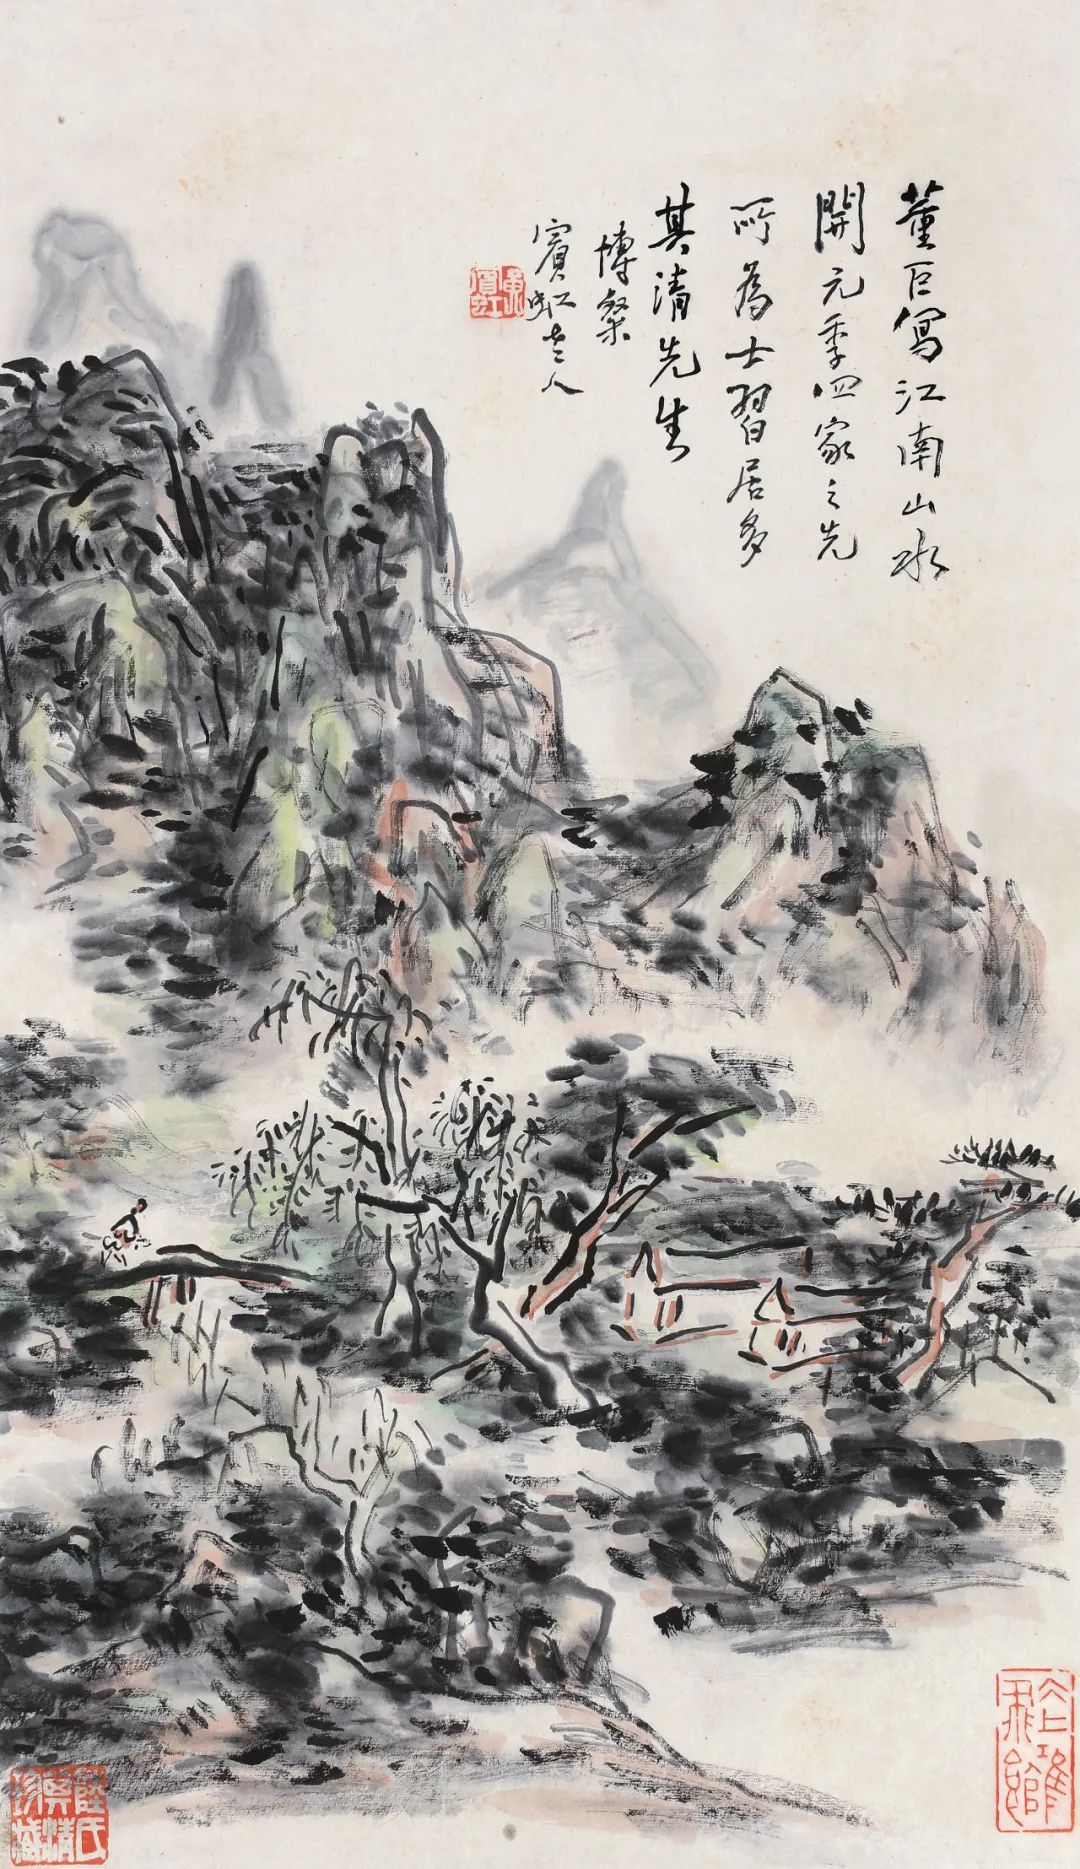 董巨寫江南山水
開元季四家之先
所為士習居多
其清先生
博粲
賓虹老人
黃賓虹